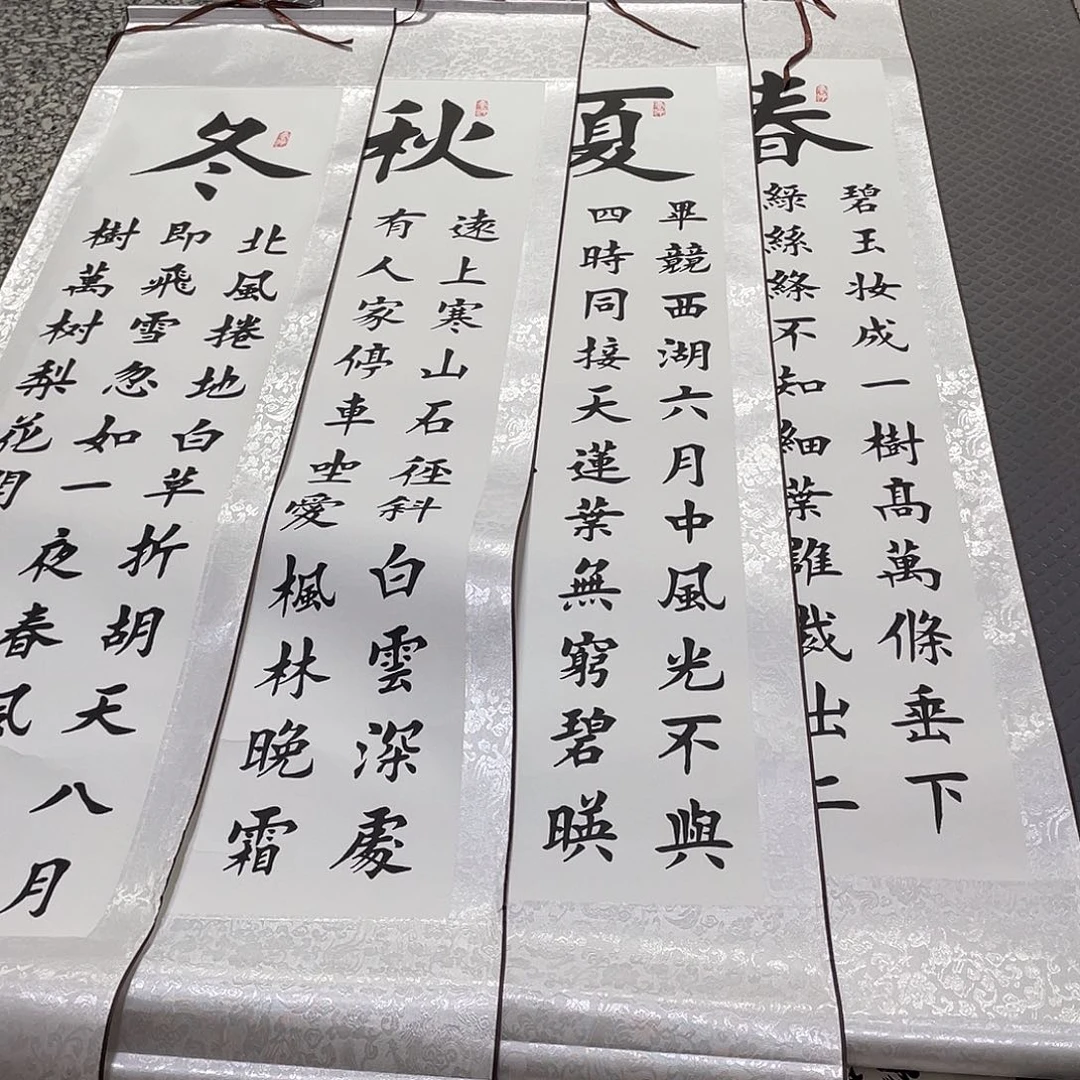 春
碧玉妆成一樹髙萬條垂下
緑絲絛不知細葉誰裁出二
夏
畢競西湖六月中風光不與
四時同接天蓮葉無窮碧暎
秋
遠上寒山石徑科白雲深處
有人家停車坐愛楓林晚霜
冬
北風捲地白草折胡天八月
即飛雪忽如一夜春風
樹萬树梨花開